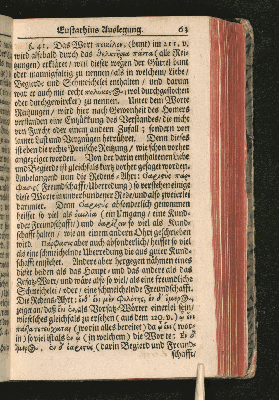 Eustathius Auslegung. 63
§. 41. Das Wort ποικίλον, (bunt) im 211. v.
wird alsbald durch das θελκτήρια πάντα (alle Rei-
zungen) erkläret / weil dieser wegen der Gürtel bunt
oder mannigfaltig zu nennen / als in welchem / Liebe /
Begierde und Schmeichelei enthalten / und darum
war er auch wie recht (wol durchgestochen
oder durchgewirket) zu nennen. Unter dem Worte
Reitzungen / wird hier nach Gewonheit des Homers
verstanden eine Entzückung des Verstandes; die nicht
von Furcht oder einem andern Zufall; sondern von
lauter Lust und Vergnügen herrühret. Denn dieses
ist eben die rechte Venische Reitzung / wie schon vorher
angezeiget worden. Von der darin enthaltenen Liebe
und Begierde ist gleichfals kurz vorher gesaget worden.
Anbelangend nun die Redens-Ahrt:
(Freundschafft / Überredung) so verstehen einige
diese Worte in unverbundener Rede / und also zweierlei
darunter. Dem absonderlich genommen
heisset so viel als ὁμιλία (ein Umgang / eine Kund-
oder Freundschafft /) und so viel als Kund-
schafft halten / wie an einem andern Ohrt geschrieben
wird. aber auch absonderlich / heisset so viel
als eine schmeichelnde Überredung die aus guter Kund-
schafft entstehet. Andere aber hergegen nehmen eines
dieser beiden als das Haupt- und das andere als das
Zusatz-Wort / und wäre also so viel / als eine freundliche
Schmeichelei / oder / eine schmeichelnde Freundschafft.
Die Redens-Ahrt: ἐνὶ μὲν φιλότης, ἐν δ᾽ ἵμερος,
zeiget an / daß ἐν als Vorsatz-Wörter einerlei seyn /
wie solches gleichfals zu ersehen (aus dem 220. v. ᾧ ἔνι
πάντα (worin alles bereitet) da ᾧ ἔνι (wor-
in) so viel ist als ἐν ᾧ (in welchem) die Worte: ἐν
δ᾽ ἵμερος, ἐν δ᾽ (darin Begierd und Freund-
schafft /